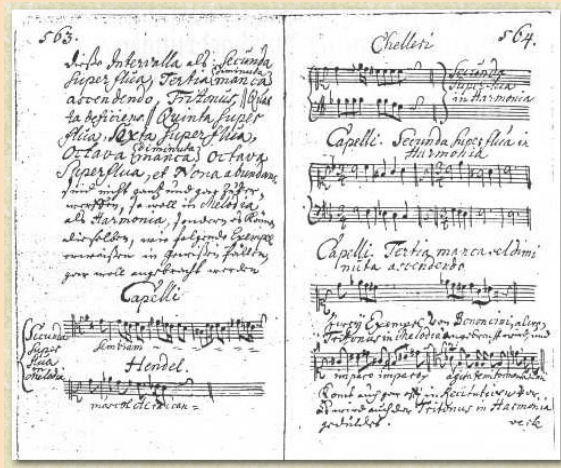 563.
diese Intervalla als: Secunda
Superflua, Tertia manca diminuta
ascendendo, Tritonus, Quin
ta deficiens, Quinta super
flua, Sexta superflua,
Octava manca diminuta, Octava
Superflua, et Nona abundans,
sind nicht ganz und gar zu ver-
werffen, so woll in Melodia
als Harmonia, sondern es können
dieselben, wie folgende Exempel
erweisen in gewissen fällen
gar woll angebracht werden
Capelli
Secunda
Super
flua
in
Melodia
Hendel.
564.
Chelleri
Secunda
Superflua
in Harmonia
Capelli. Secunda superflua in
Harmonia
Capelli. Tertia manca vel dimi
nuta ascendendo
Exempel von Bononcini, also
Tritonus in Melodia
impero impero
Komt auch gar oft in Recitativ vor.
Es wird auch der Tritonus in Harmonia
geduldet.